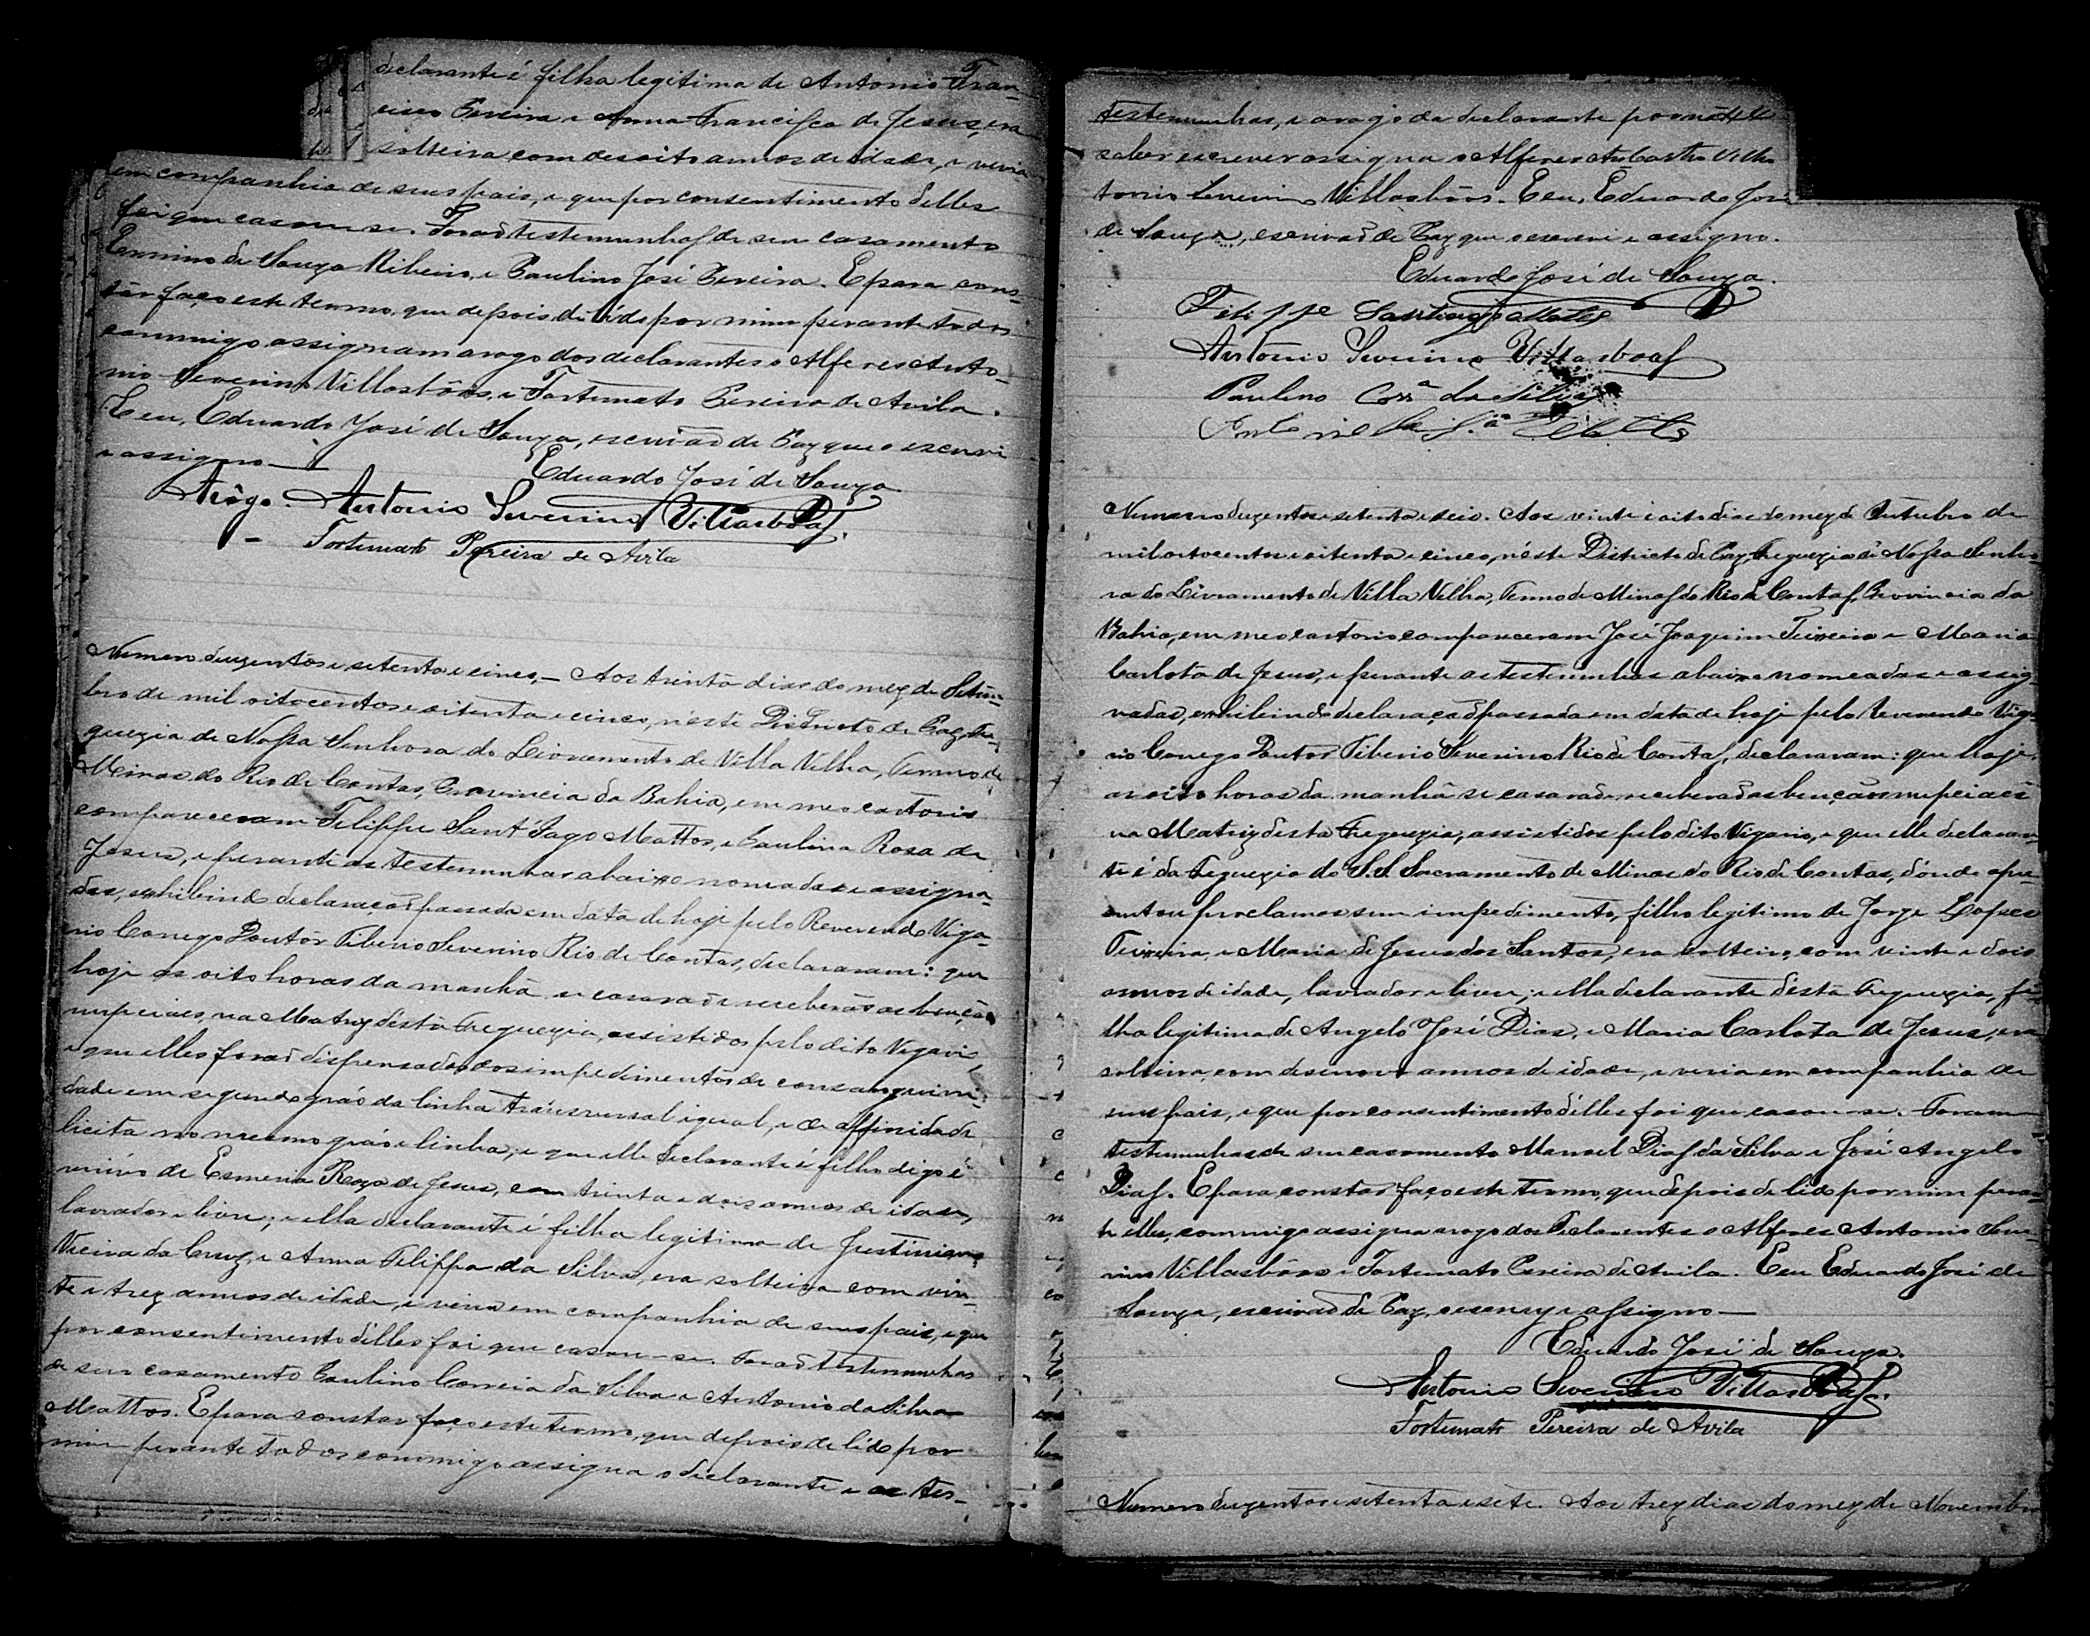 declarante é filha legitima de Antonio Fran-
cisco Pereira e Anna Francisca de Jesus, era
solteira com desoito annos de idade, e vivia
em companhia de seus pais, e que por consentimento delles
foi que casou-se. Forão testemunhas de seu casamento
de Souza Ribeiro, e Paulino José Pereira. E para cons-
tar faço este termo, que depois de lido por mim perante todos
commigo assignam arogo dos declarantes o Alferes Anto-
nio Severino Villasbôas, e Fortunato Pereira de Avila.
E eu, Eduardo José de Souza, escrivão de Paz que o escrevi
e assigno
Eduardo José de Souza
Arôgo. Antonio Severino Villasboas.
Fortunato Pereira de Avila
Numero duzentos e setenta e cinco. — Aos trinta dias do mez de Setem-
bro de mil oitocentos e oitenta e cinco, n'este Districto de Paz, Fre-
guezia de Nossa Senhora do Livramento de Villa Velha, Termo de
Minas do Rio de Contas, Provincia da Bahia, em meo cartorio
compareceram Filippe Sant'Iago Mattos, e Paulina Rosa de
Jesus, e perante as testemunhas abaixo nomeadas e assigna-
das, exhibindo declaração passada em data de hoje pelo Reverendo Viga-
rio Conego Doutor Tiberio Severino Rio de Contas, declararam: que
hoje as oito horas da manhã se casarão e receberão as bençãos
nupciaes, na Matriz désta Freguezia, assistidos pelo dito Vigario,
e que elles forão dispensados dos impedimentos de consanguini-
dade em segundo gráo da linha transversal igual, e de affinidade
licita no mesmo gráo e linha; e que elle declarante é filho digo é
viuvo de Esmeria Roza de Jesus, com trinta e dois annos de idade,
lavrador e livre; e ella declarante é filha legitima de Justiniano
Vieira da Cruz, e Anna Filippa da Silva, era solteira com vin-
te e trez annos de idade, e vivia em companhia de seus pais, e que
por consentimento délles foi que casou-se. Forão testemunhas
de seu casamento Paulino Correia da Silva e Antonio da Silva
Mattos. E para constar faço este termo, que depois de lido por
mim perante todos commigo assigna o declarante e as tes-
testemunhas, e arogo da declarante por não
saber escrever assigna o Alferes
tonio Severino Villasbôas. E eu, Eduardo José
de Souza, escrivão de Paz que o escrevi e assigno.
Eduardo José de Souza.
Filippe Santiago Mattos
Antonio Severino Villasboas
Paulino Corrª da Silva
Antonio da Sª
Numero duzentos e setenta e seis. Aos vinte e oito dias do mez de Outubro de
mil oitocentos e oitenta e cinco, n'éste Districto de Paz, Freguezia de Nossa Senho-
ra do Livramento de Villa Velha, Termo de Minas do Rio de Contas, Provincia da
Bahia, em meo cartorio compareceram José Joaquim Teixeira e Maria
Carlota de Jesus, e perante as testemunhas abaixo nomeadas e assig-
nadas, exhibindo declaração passada em data de hoje pelo Reverendo Viga-
rio Conego Doutor Tiberio Severino Rio de Contas, declararam: que hoje
as oito horas da manhã se casarão e receberão as bençãos nupciaes
na Matriz desta Freguezia, assistidos pelo dito Vigario, e que elle declaran-
te é da Freguezia do S.S. Sacramento de Minas do Rio de Contas, d'onde apre-
sentou proclamas sem impedimento, filho legitimo de Jorge Lopes
Teixeira, e Maria de Jesus dos Santos, era solteiro, com vinte e dois
annos de idade, lavrador e livre; e ella declarante désta Freguezia, fi-
lha legitima de Angelo José Dias, e Maria Carlota de Jesus, era
solteira, com desenove annos de idade, e vivia em companhia de
seus pais, e que por consentimento délles foi que casou-se. Foram
testemunhas de seu casamento Manoel Dias da Silva e José Angelo
Dias. E para constar faço este termo, que depois de lido por mim peran-
te elles, commigo assigna arogo dos declarantes o Alferes Antonio Seve-
rino Villasbôas e Fortunato Pereira de Avila. E eu Eduardo José de
Souza, escrivão de Paz, o escrevy e assigno —
Eduardo José de Souza.
Antonio Severino Villasboas.
Fortunato Pereira de Avila
Numero duzentos e setenta e sete. Aos trez dias do mez de Novembro